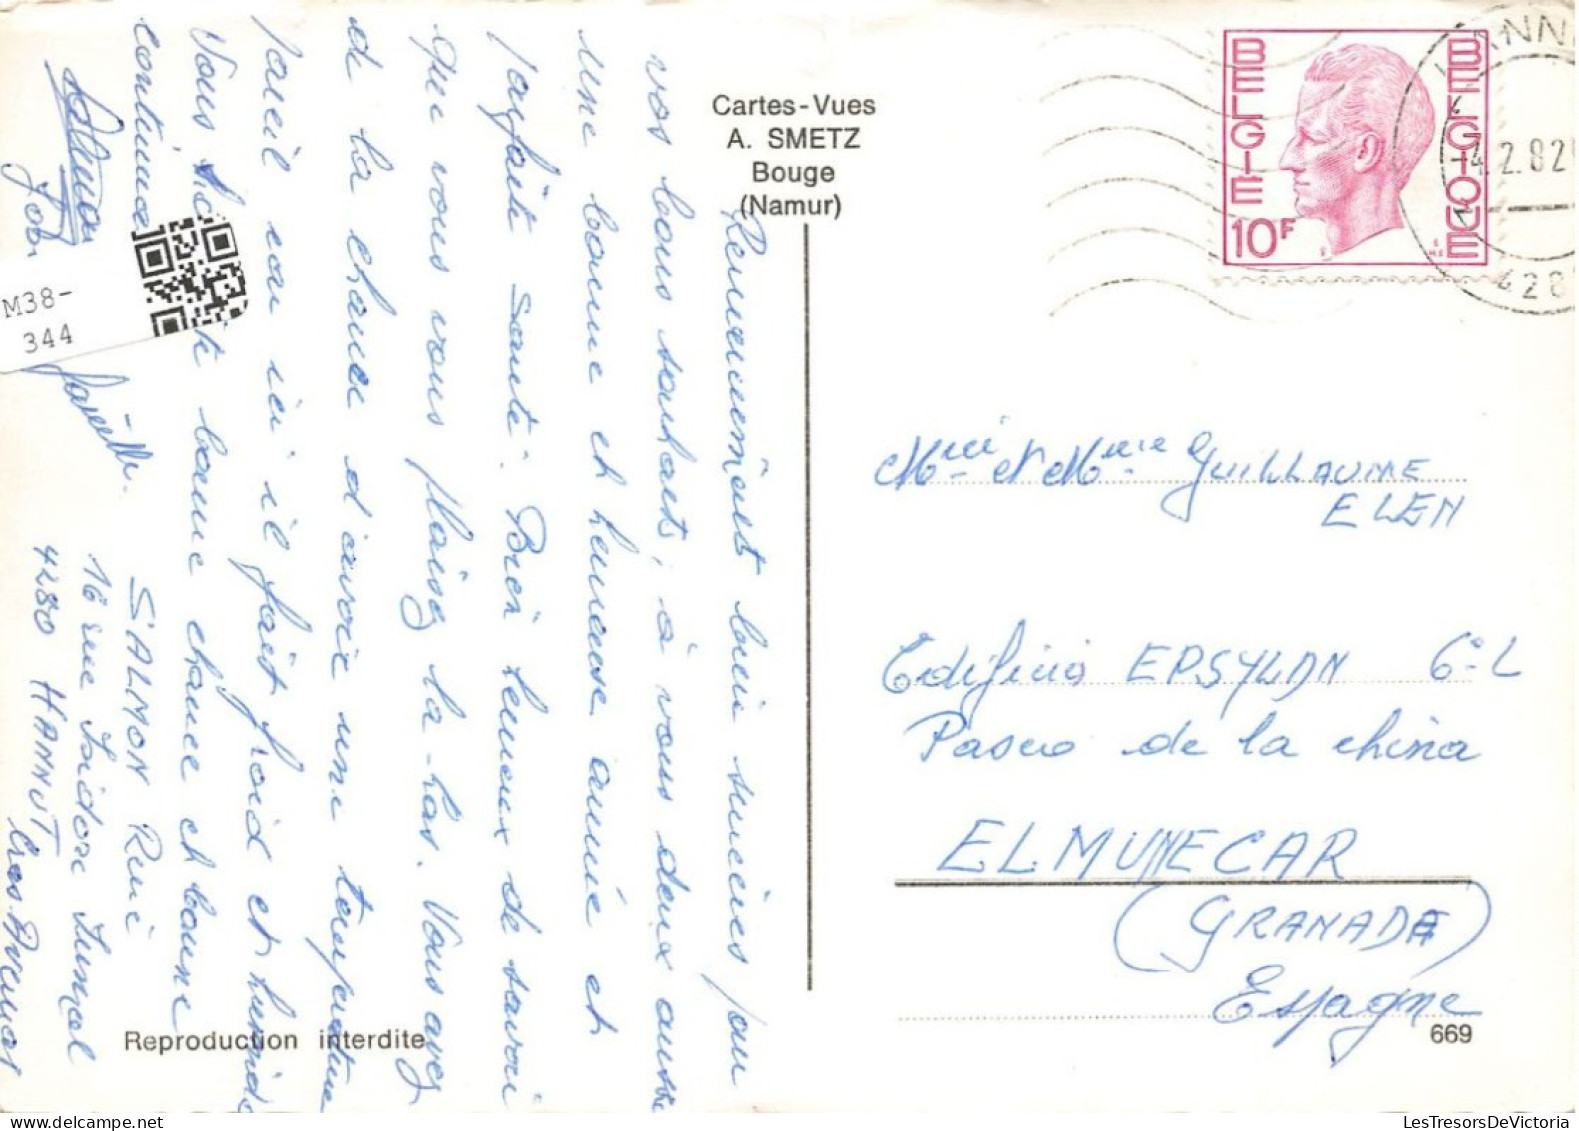 Cartes-Vues
A. SMETZ
Bouge
(Namur)
BELGIE
BELGIQUE
10F
HANN
4.2.82
428
Mme Guillaume
ELEN
Edificio EPSYLON 6º L
Paseo de la china
ELMUNECAR
(GRANADA)
Espagne
669
Reproduction interdite
bien sincères pour
vos bons souhaits, à vous deux aussi
une bonne et heureuse année et
parfaite santé. Bien heureux de savoir
que vous vous plaisez la-bas. Vous avez
de la chance d'avoir une température
pareil car ici il fait froid et humide
Vous bonne chance et bonne
continuation
SALMON René
16 rue Isidore
4280 HANNUT
M38-
344
LesTresorsDeVictoria